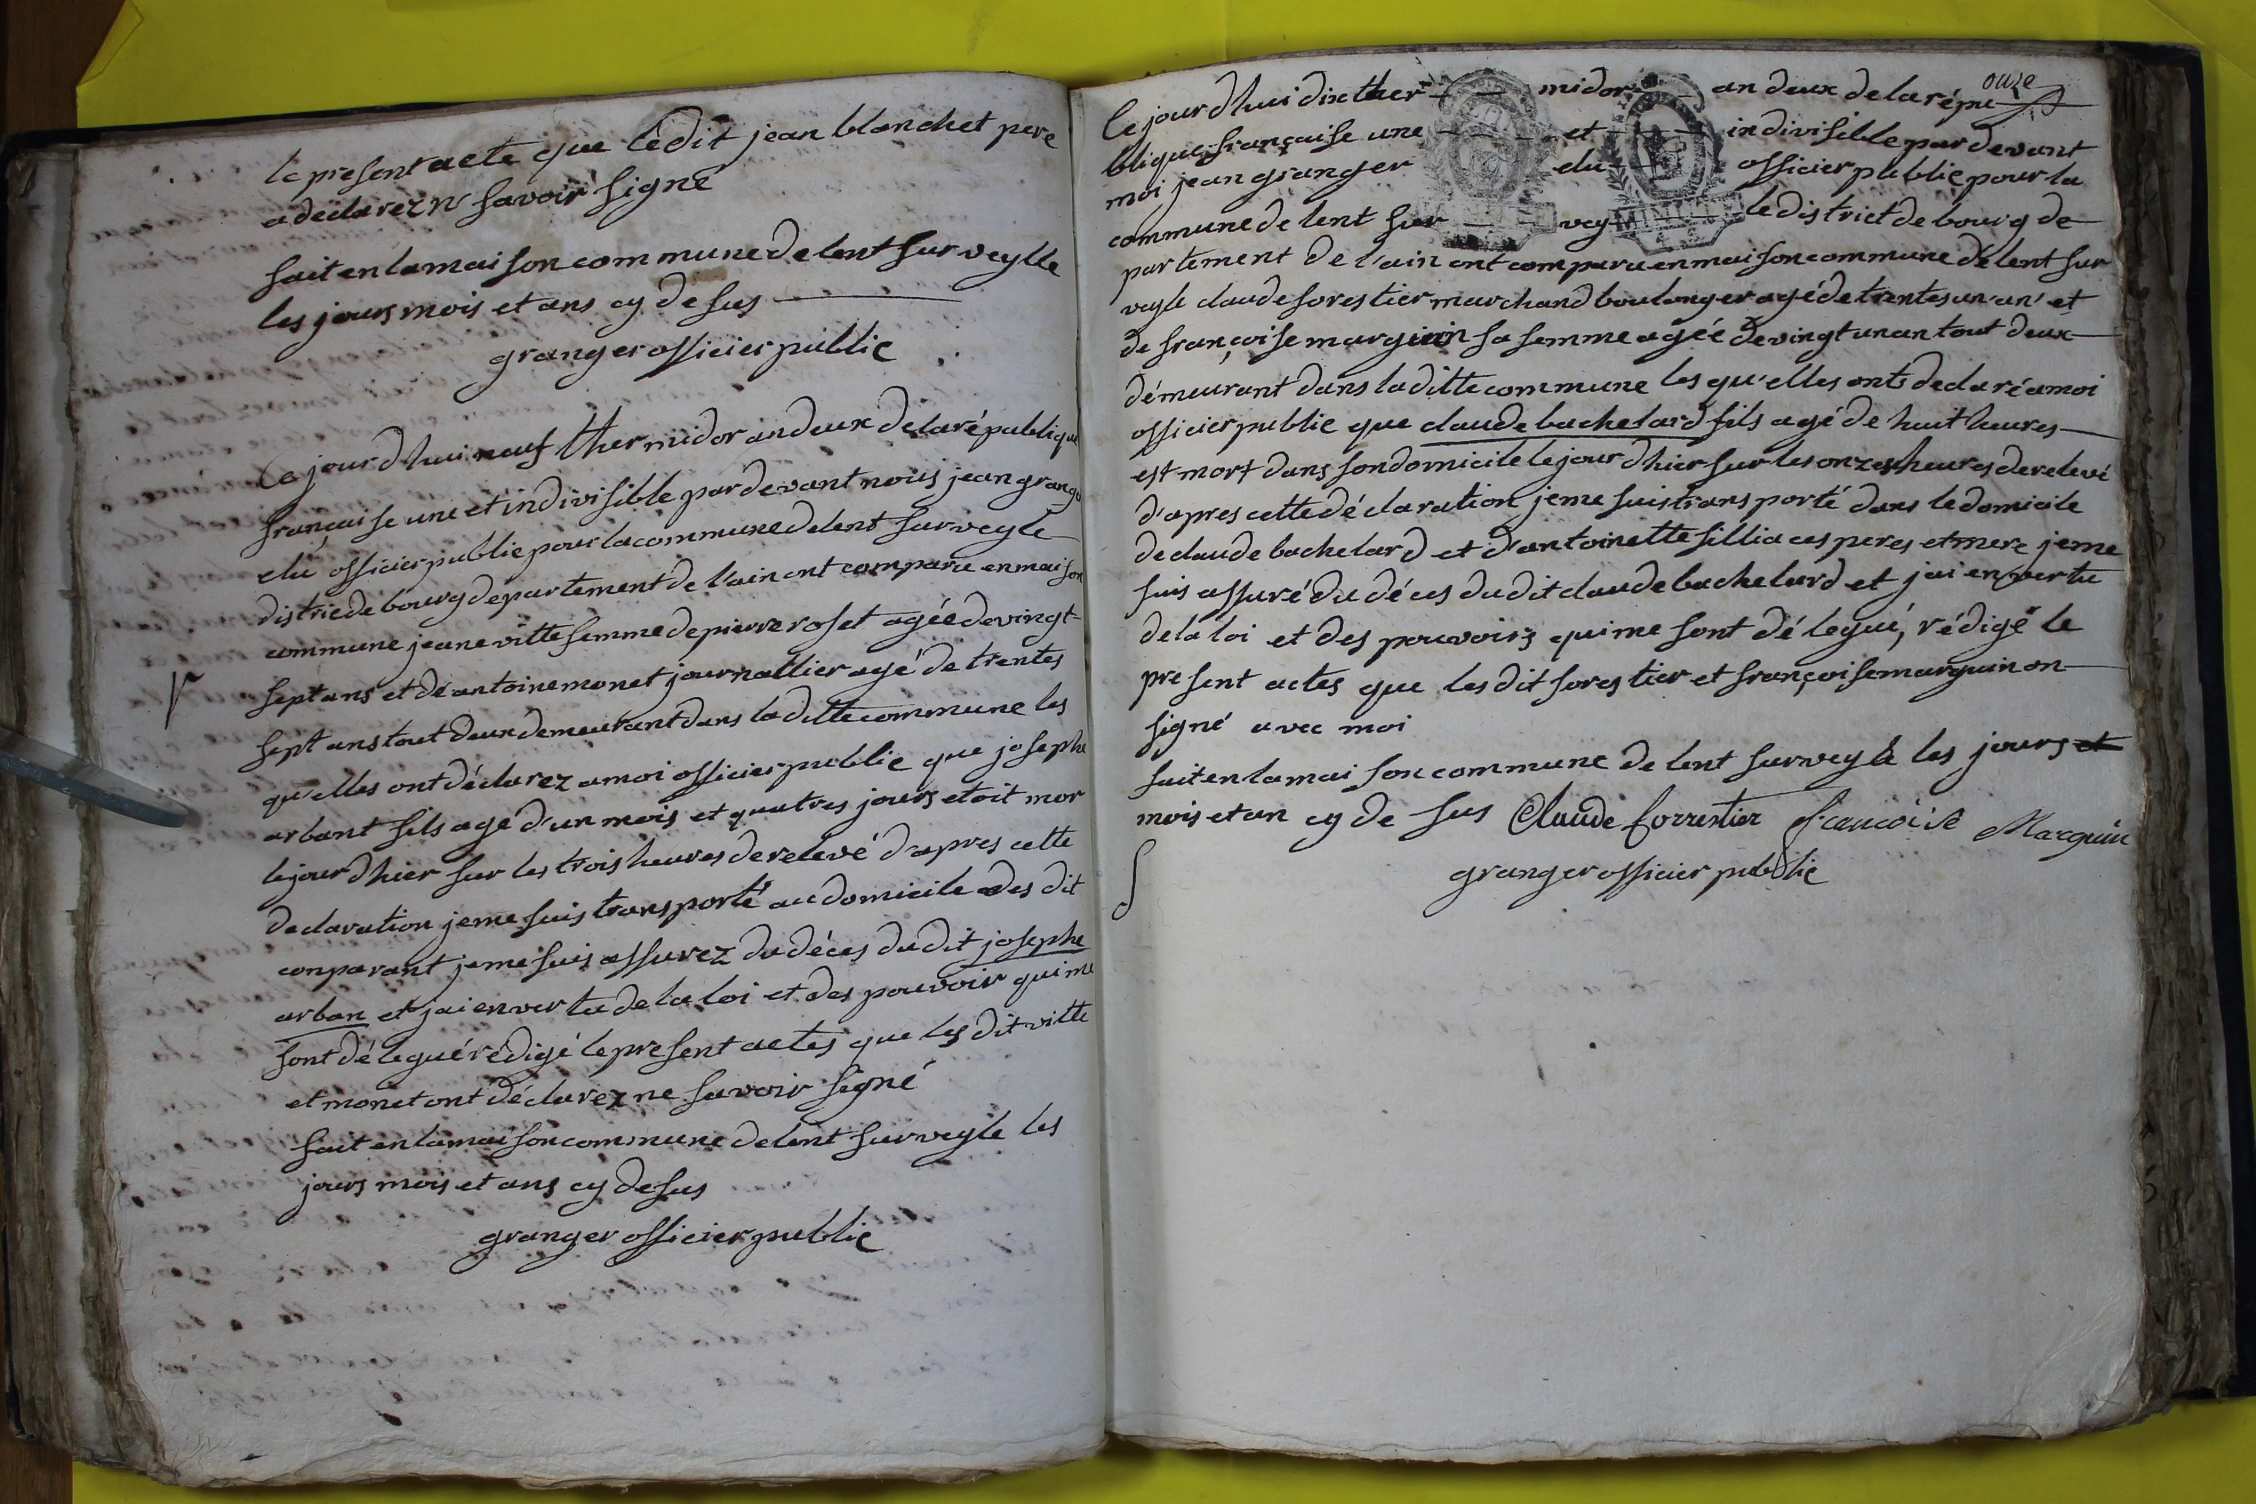 le present acte que ledit jean blanchet pere
a declarez nē savoir signé
fait en la maison commune de lent sur veylle
les jours mois et ans cy desus
granger officier public
Ce jourdhui neuf thermidor an deux de la république
française une et indivisible pardevant nous jean granger
elu officier public pour la commune de lent sur veyle
distric de bourg departement de l'ain ont comparu en maison
commune jeane vitte femme de pierre roset agée de vingt
sept ans et de antoine monet journallier agé de trentes
sept ans tout deux demeurant dans la ditte commune les
qu'elles ont déclarez a moi officier public que josephe
arbant fils agé d'un mois et quatres jours etoit mor
le jour dhier sur les trois heures de relevé d'apres cette
declaration je me suis transporté au domicile des dit
conparant je me suis assurez du déces du dit josephe
arban et jai en vertu de la loi et des pouvoir qui me
sont délegué rédigé le present actes que les dit vitte
et monet ont déclarez ne savoir signé
fait en la maison commune de lent sur veyle les
jours mois et ans cy desus
granger officier public
Ce jourdhui dix ther midor an deux de la répu
blique française une et indivisible par devant
moi jean granger elu officier public pour la
commune de lent sur vey le district de bourg de
partement de l'ain ont comparu en maison commune de lent sur
veyle claude forestier marchand boulanger agé de trentes un an et
de françoise marguin sa femme agée de vingt un an tout deux
démeurant dans la ditte commune les qu'elles onts declaré a moi
officier public que claude bachelard fils agé de huit heures
est mort dans son domicile le jour dhier sur les onzes heures de relevé
d'apres cette déclaration je me suis transporté dans le domicile
de claude bachelard et d'antoinette fillia ces peres et mere je me
suis assuré du déces du dit claude bachelard et jai en vertu
de la loi et des pouvoirs qui me sont délegué, rédigé le
present actes que les dit forestier et françoise marguin on
signé avec moi
fait en la maison commune de lent sur veyle les jours et
mois et an cy de sus Claude forrestier francoise Marguin
granger officier public